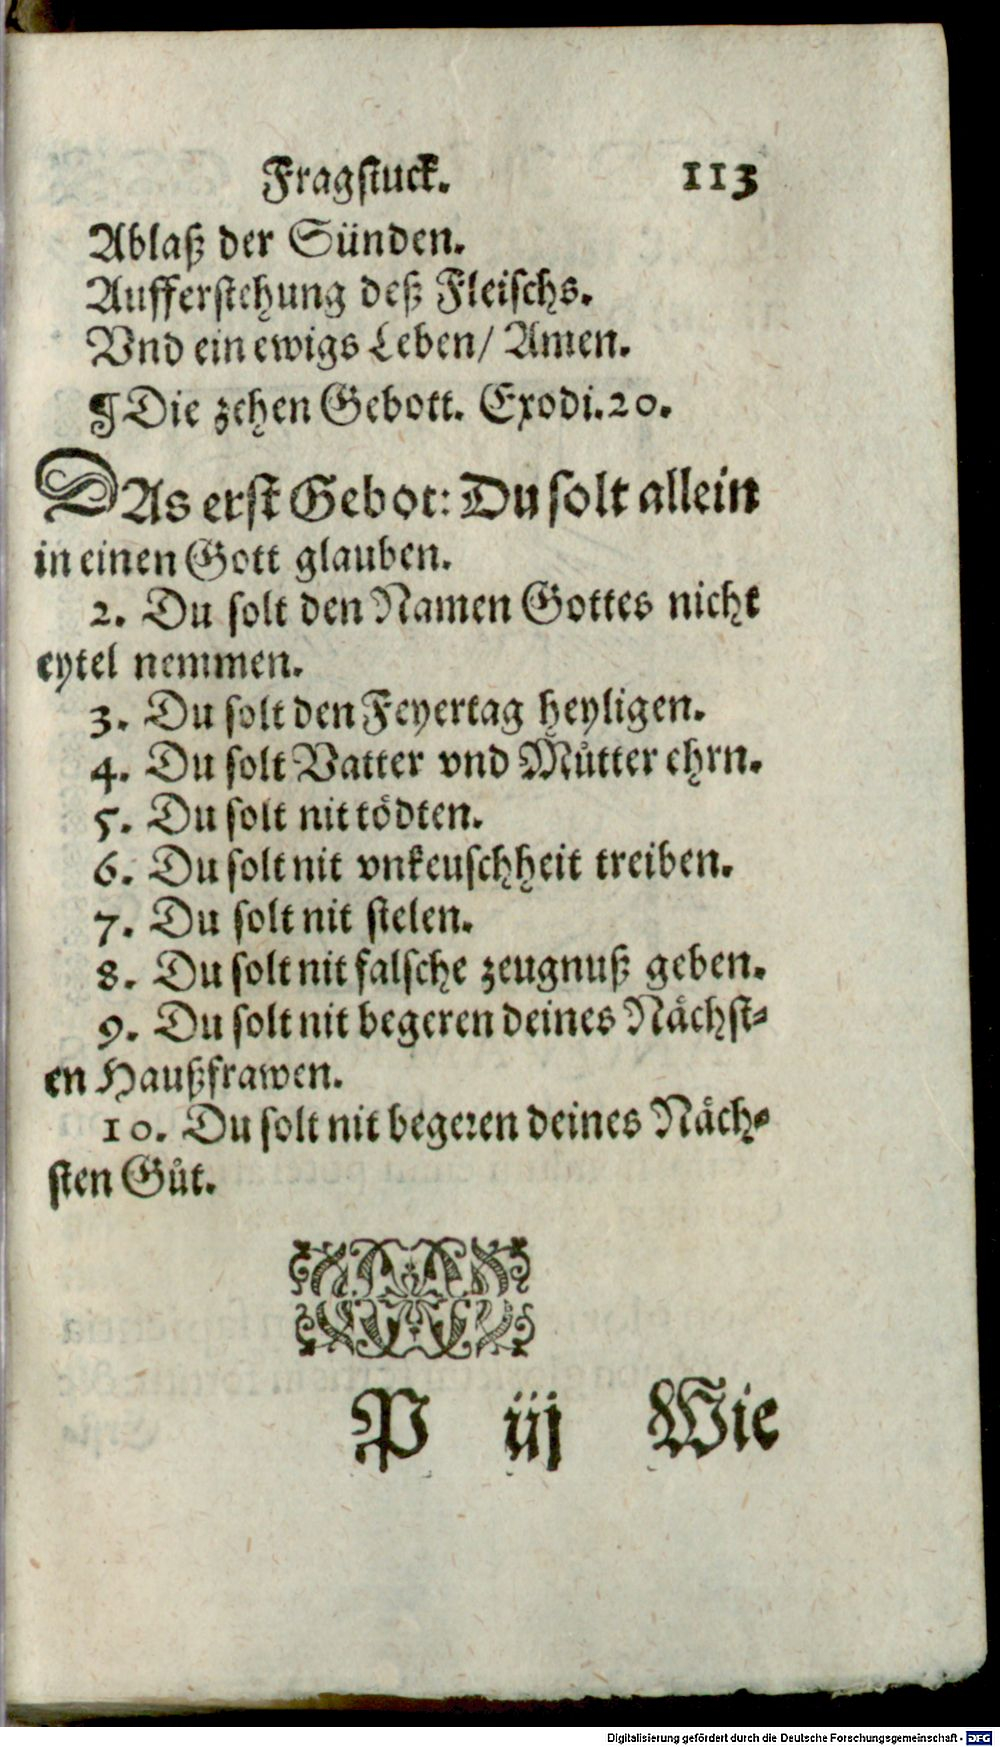 Fragstuck. 113
Ablaß der Sünden.
Aufferstehung deß Fleischs.
Vnd ein ewigs Leben/ Amen.
¶ Die zehen Gebott. Exodi. 20.
DAs erst Gebot: Du solt allein
in einen Gott glauben.
2. Du solt den Namen Gottes nicht
eytel nemmen.
3. Du solt den Feyertag heyligen.
4. Du solt Vatter vnd Můtter ehrn.
5. Du solt nit tödten.
6. Du solt nit vnkeuschheit treiben.
7. Du solt nit stelen.
8. Du solt nit falsche zeugnuß geben.
9. Du solt nit begeren deines Nächst-
en Haußfrawen.
10. Du solt nit begeren deines Näch-
sten Gůt.
P iij Wie
Digitalisierung gefördert durch die Deutsche Forschungsgemeinschaft - DFG